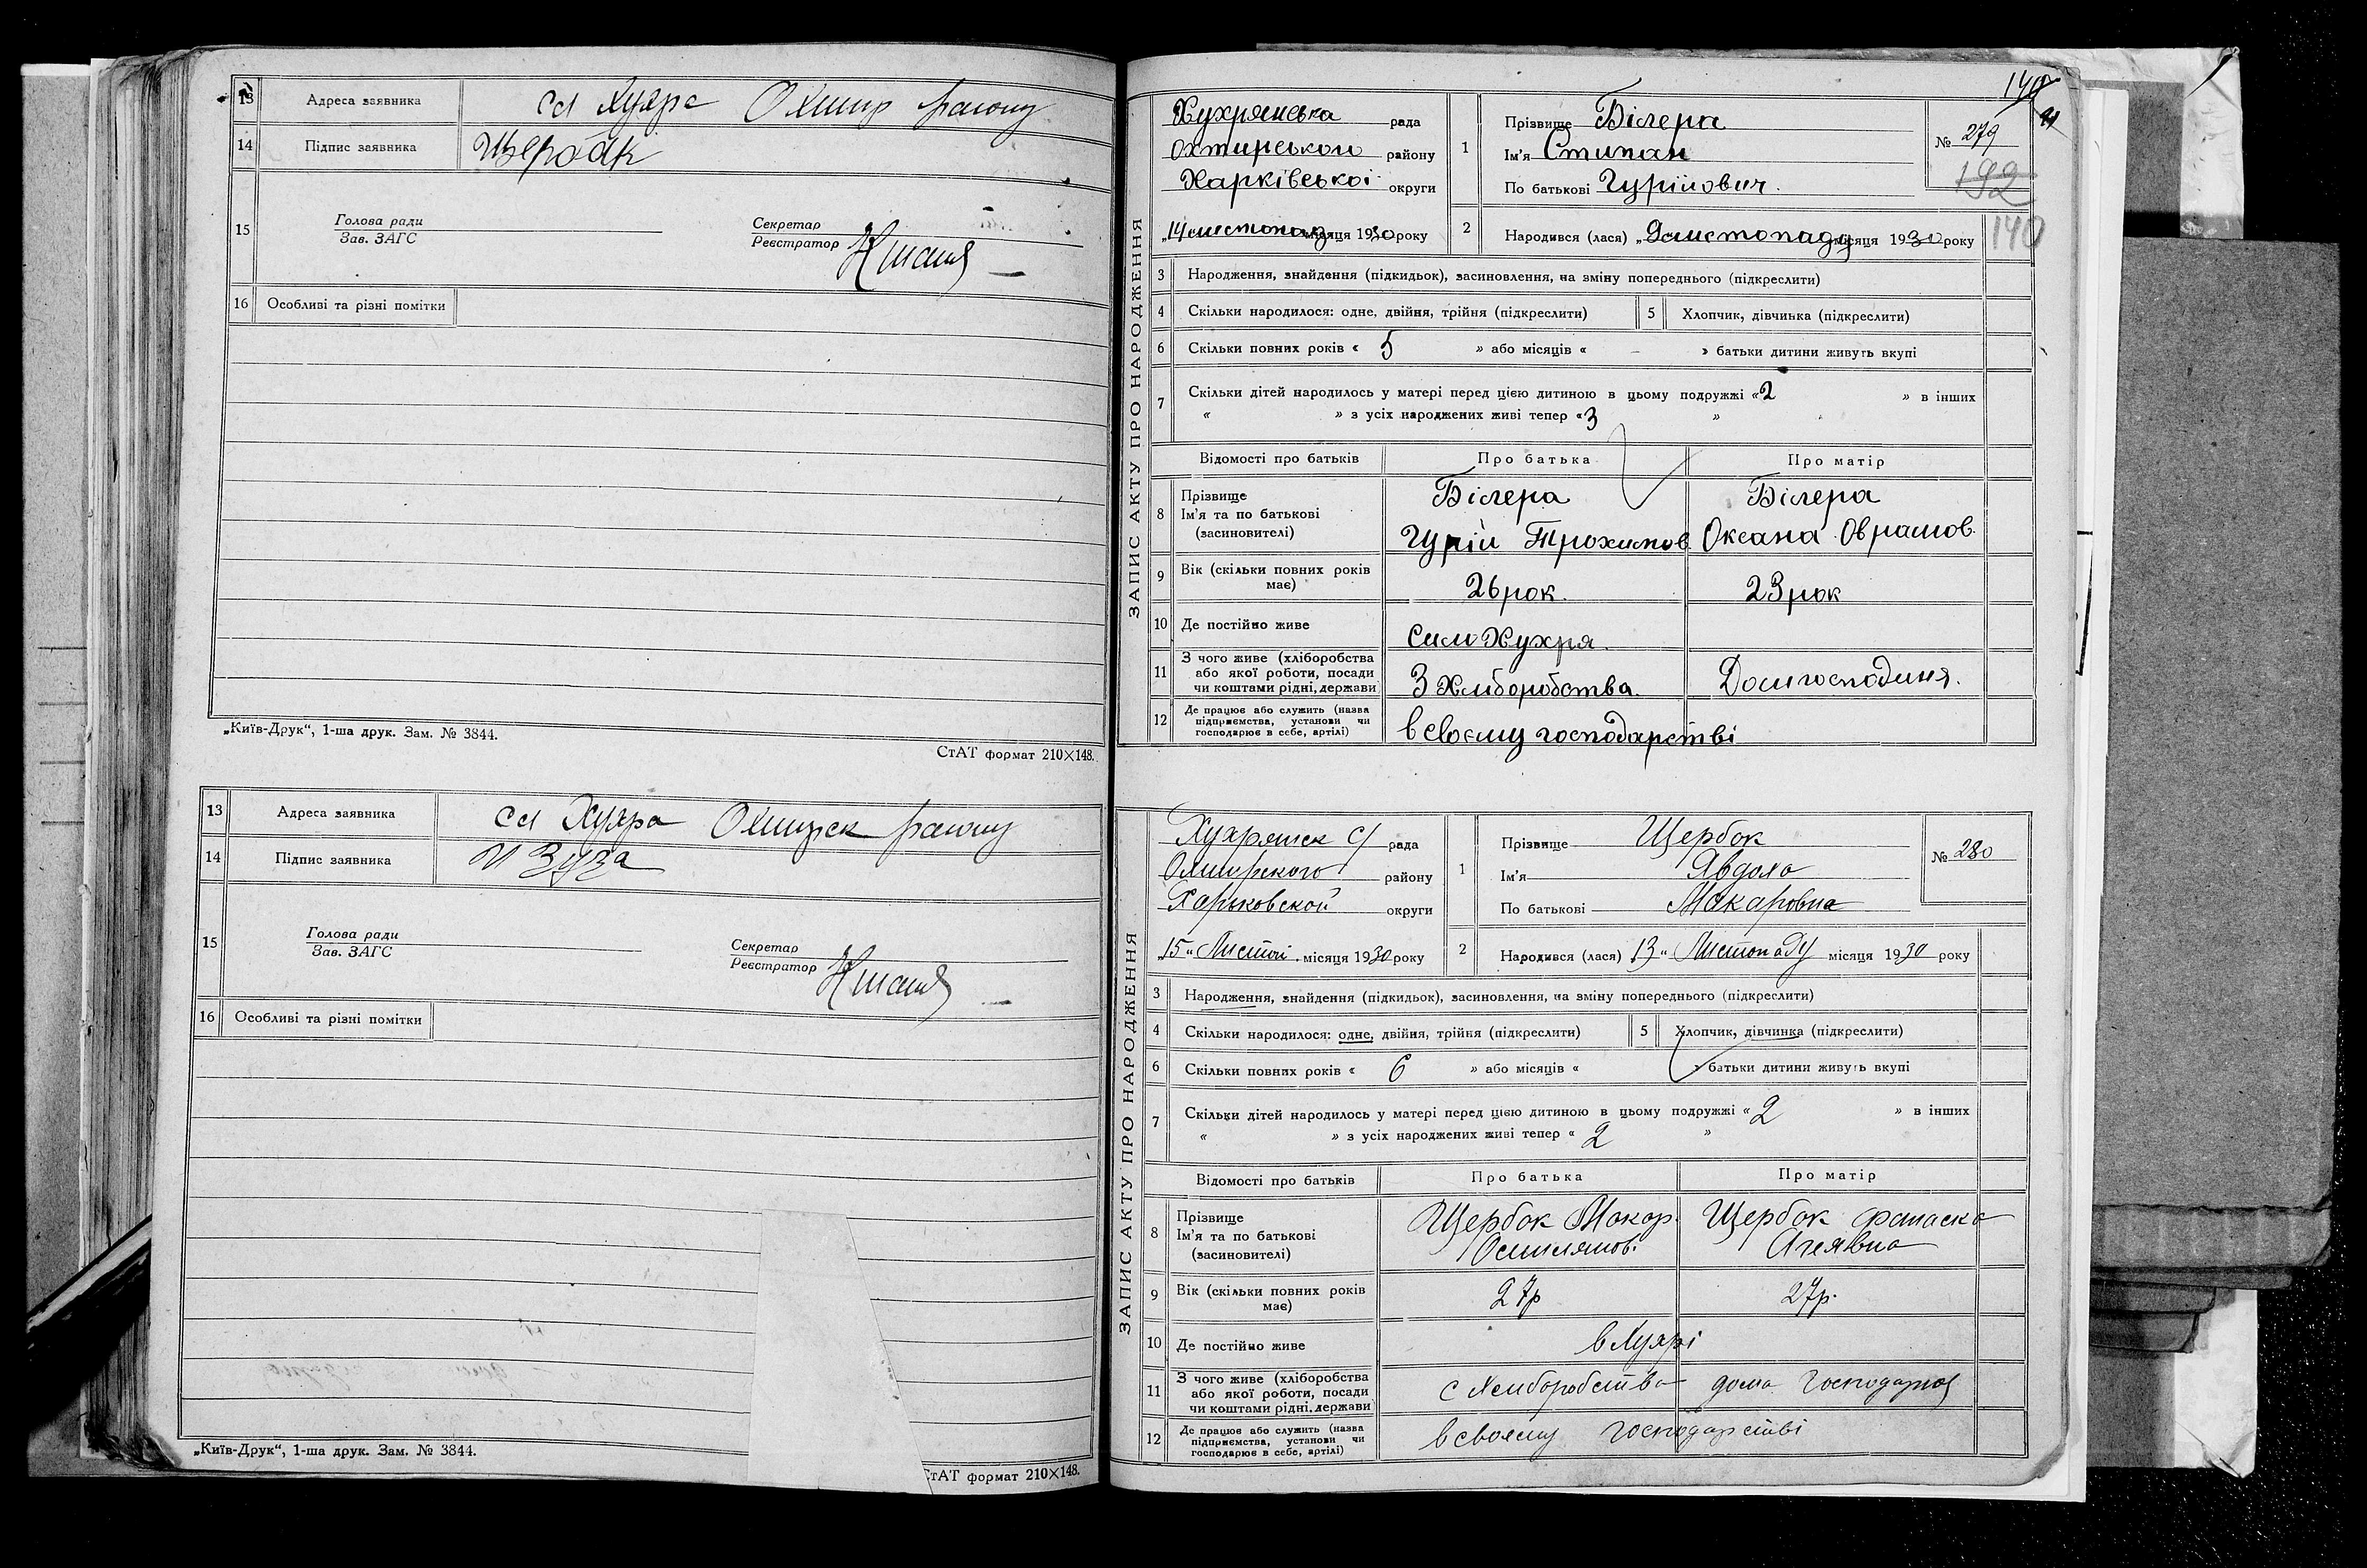 13 Адреса заявника сл Хухра Охтир району
14 Підпис заявника Щербак
15 Голова ради
Зав. ЗАГС
Секретар
Реєстратор
16 Особливі та різні помітки
„Київ-Друк“, 1-ша друк. Зам. № 3844.
СтАТ формат 210×148.
13 Адреса заявника сл Хухра Охтирск району
14 Підпис заявника И Зуза
15 Голова ради
Зав. ЗАГС
Секретар
Реєстратор
16 Особливі та різні помітки
„Київ-Друк“, 1-ша друк. Зам. № 3844.
СтАТ формат 210×148.
140
ЗАПИС АКТУ ПРО НАРОДЖЕННЯ
Хухрянська рада
Охтирського району
Харківської округи
„14 листопад місяця 1930 року
1 Прізвище Білера
Ім'я Стипан
По батькові Гурійович.
№ 279
192
140
2 Народився (лася) „9 листопаду місяця 1930 року
3 Народження, знайдення (підкидьок), засиновлення, на зміну попереднього (підкреслити)
4 Скільки народилося: одне, двійня, трійня (підкреслити)
5 Хлопчик, дівчинка (підкреслити)
6 Скільки повних років « 5 » або місяців « – » батьки дитини живуть вкупі
7 Скільки дітей народилось у матері перед цією дитиною в цьому подружжі «2 » в інших
« » з усіх народжених живі тепер «3 »
Відомості про батьків Про батька Про матір
8 Прізвище Ім'я та по батькові (засиновителі)
Білера Білера
Гурій Трохимов. Оксана Оврамов.
9 Вік (скільки повних років має) 26 рок. 23 рок
10 Де постійно живе Село Хухря.
11 З чого живе (хліборобства або якої роботи, посади чи коштами рідні, держави З Хліборобства. Домгосподиня.
12 Де працює або служить (назва підприємства, установи чи господарює в себе, артілі) в своєму господарстві
ЗАПИС АКТУ ПРО НАРОДЖЕННЯ
Хухрянск с/ рада
Охтирского району
Харьковской округи
„15“ Листоп. місяця 1930 року
1 Прізвище Щербок
Ім'я Явдоха
По батькові Макаровна
№ 280
2 Народився (лася) „13“ Листопаду місяця 1930 року
3 Народження, знайдення (підкидьок), засиновлення, на зміну попереднього (підкреслити)
4 Скільки народилося: одне, двійня, трійня (підкреслити)
5 Хлопчик, дівчинка (підкреслити)
6 Скільки повних років « 6 » або місяців « » батьки дитини живуть вкупі
7 Скільки дітей народилось у матері перед цією дитиною в цьому подружжі « 2 » в інших
« » з усіх народжених живі тепер « 2 »
Відомості про батьків Про батька Про матір
8 Прізвище Ім'я та по батькові (засиновителі)
Щербок Макар. Щербок
9 Вік (скільки повних років має) 27р 27р.
10 Де постійно живе в Хухрі
11 З чого живе (хліборобства або якої роботи, посади чи коштами рідні, держави с Хлиборобства дома
12 Де працює або служить (назва підприємства, установи чи господарює в себе, артілі) в своему господарстві